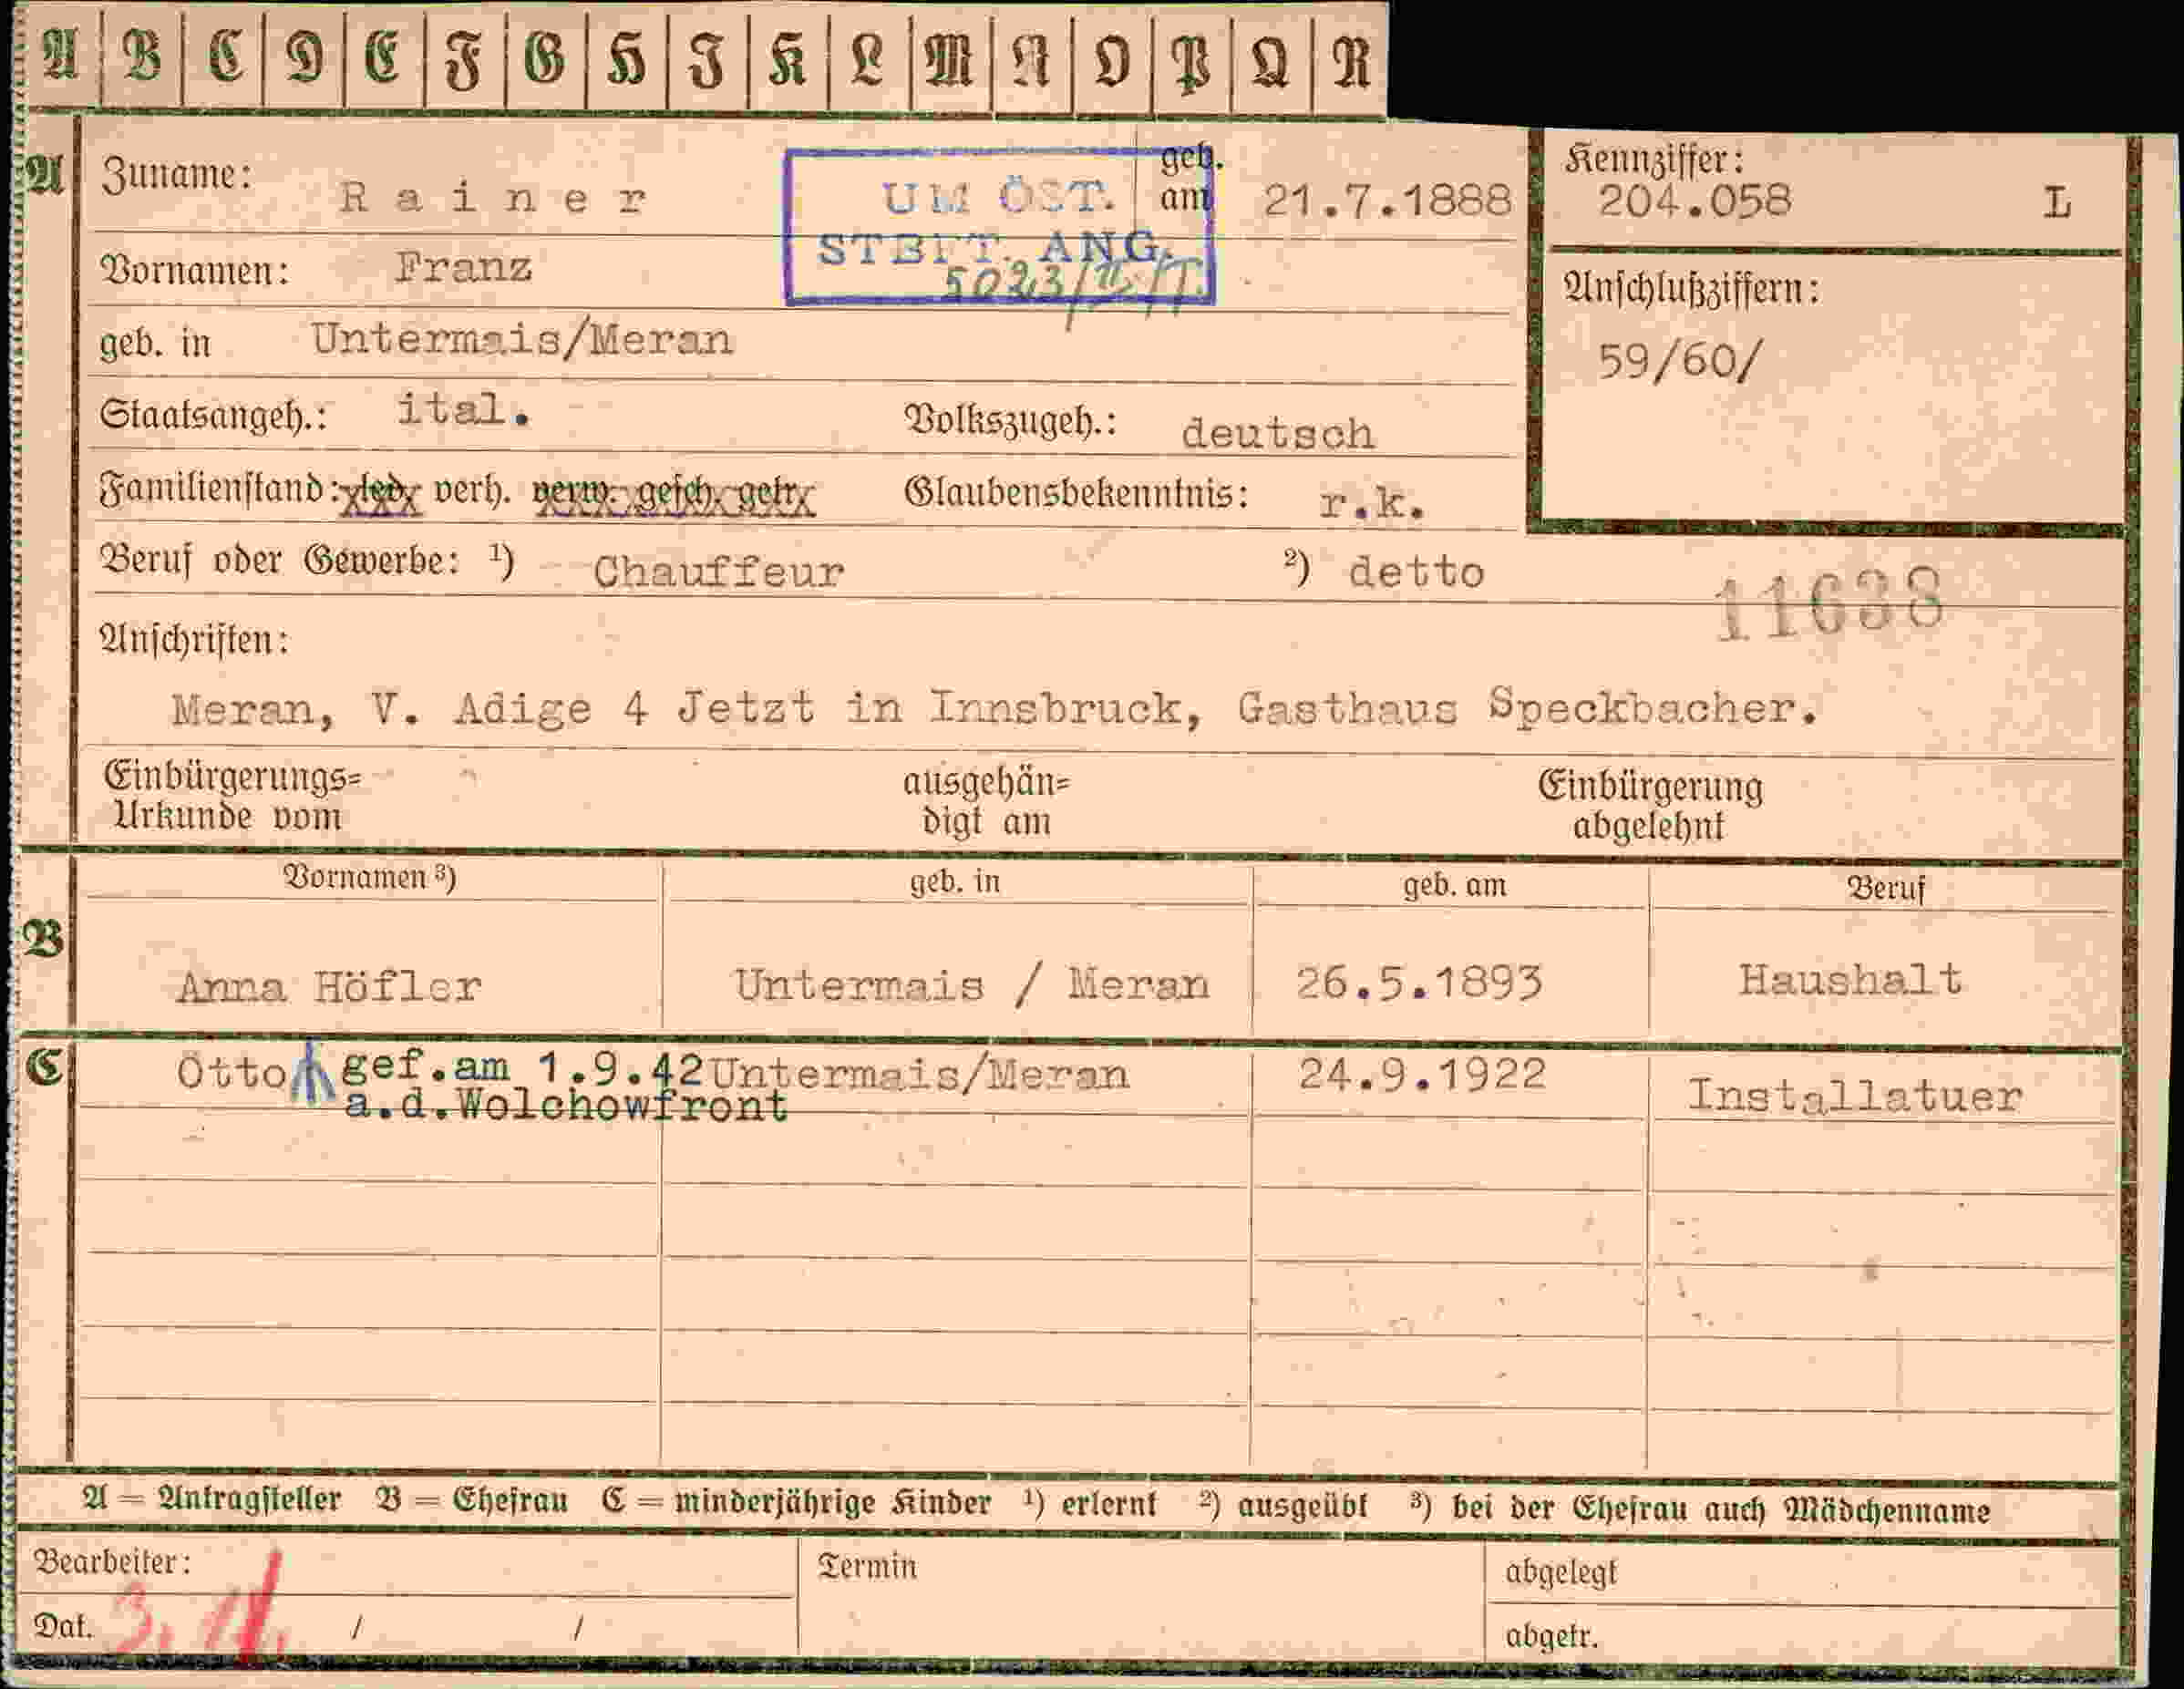 A B C D E F G H I K L M N O P Q R
A Zuname: Rainer geb. am 21.7.1888
UM ÖST. STBFT. ANG.
5023/II/T.
Kennziffer: 204.058 L
Vornamen: Franz
Anschlußziffern: 59/60/
geb. in Untermais/Meran
Staatsangeh.: ital. Volkszugeh.: deutsch
Familienstand: led. verh. verw. gesch. getr. Glaubensbekenntnis: r.k.
Beruf oder Gewerbe: 1) Chauffeur 2) detto
11638
Anschriften:
Meran, V. Adige 4 Jetzt in Innsbruck, Gasthaus Speckbacher.
Einbürgerungs= ausgehän= Einbürgerung
Urkunde vom digt am abgelehnt
Vornamen 3) geb. in geb. am Beruf
B Anna Höfler Untermais / Meran 26.5.1893 Haushalt
C Otto gef.am 1.9.42 Untermais/Meran 24.9.1922 Installatuer
a.d.Wolchowfront
A = Antragsteller B = Ehefrau C = minderjährige Kinder 1) erlernt 2) ausgeübt 3) bei der Ehefrau auch Mädchenname
Bearbeiter: Termin abgelegt
Dat. 3. 11. / / abgetr.